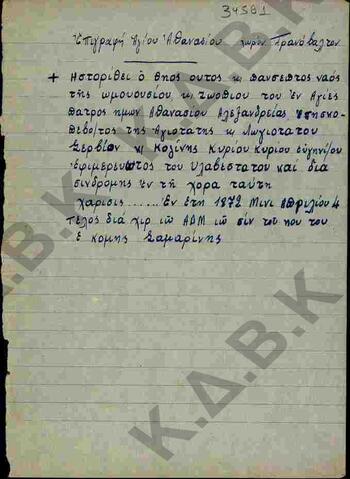 34581
Ἐπιγραφή Ἁγίου Ἀθανασίου χωρίου Τρανόβαλτον
+ Ηστορίθει ὁ θηος ουτος κ̣ πανσεπτος ναός
τῆς ὡμουουσίου, κ̣ του ἐν Αγίες
Πατρος ημων Αθανασίου Αλεξανδρείας,
της Αγιοτατης κ̣ Λωγιοτατου
Σερβίον κ̣ Κοζίνης Κυρίου Κυρίου ευγηνίου
ἐφιμερευωτος του υλαβεστατου και δια
σινδρομης ἐν τῆ χορα ταύτη
χαρισις....... Εν ετη 1872 Μινι Απριλίου 4
τελος διά χιρ ιῶ ΑΔΜ ιῶ σίν του ηου του
ἐ κομης Σαμαρίνης
Κ.Δ.Β.Κ
Κ.Δ.Β.Κ